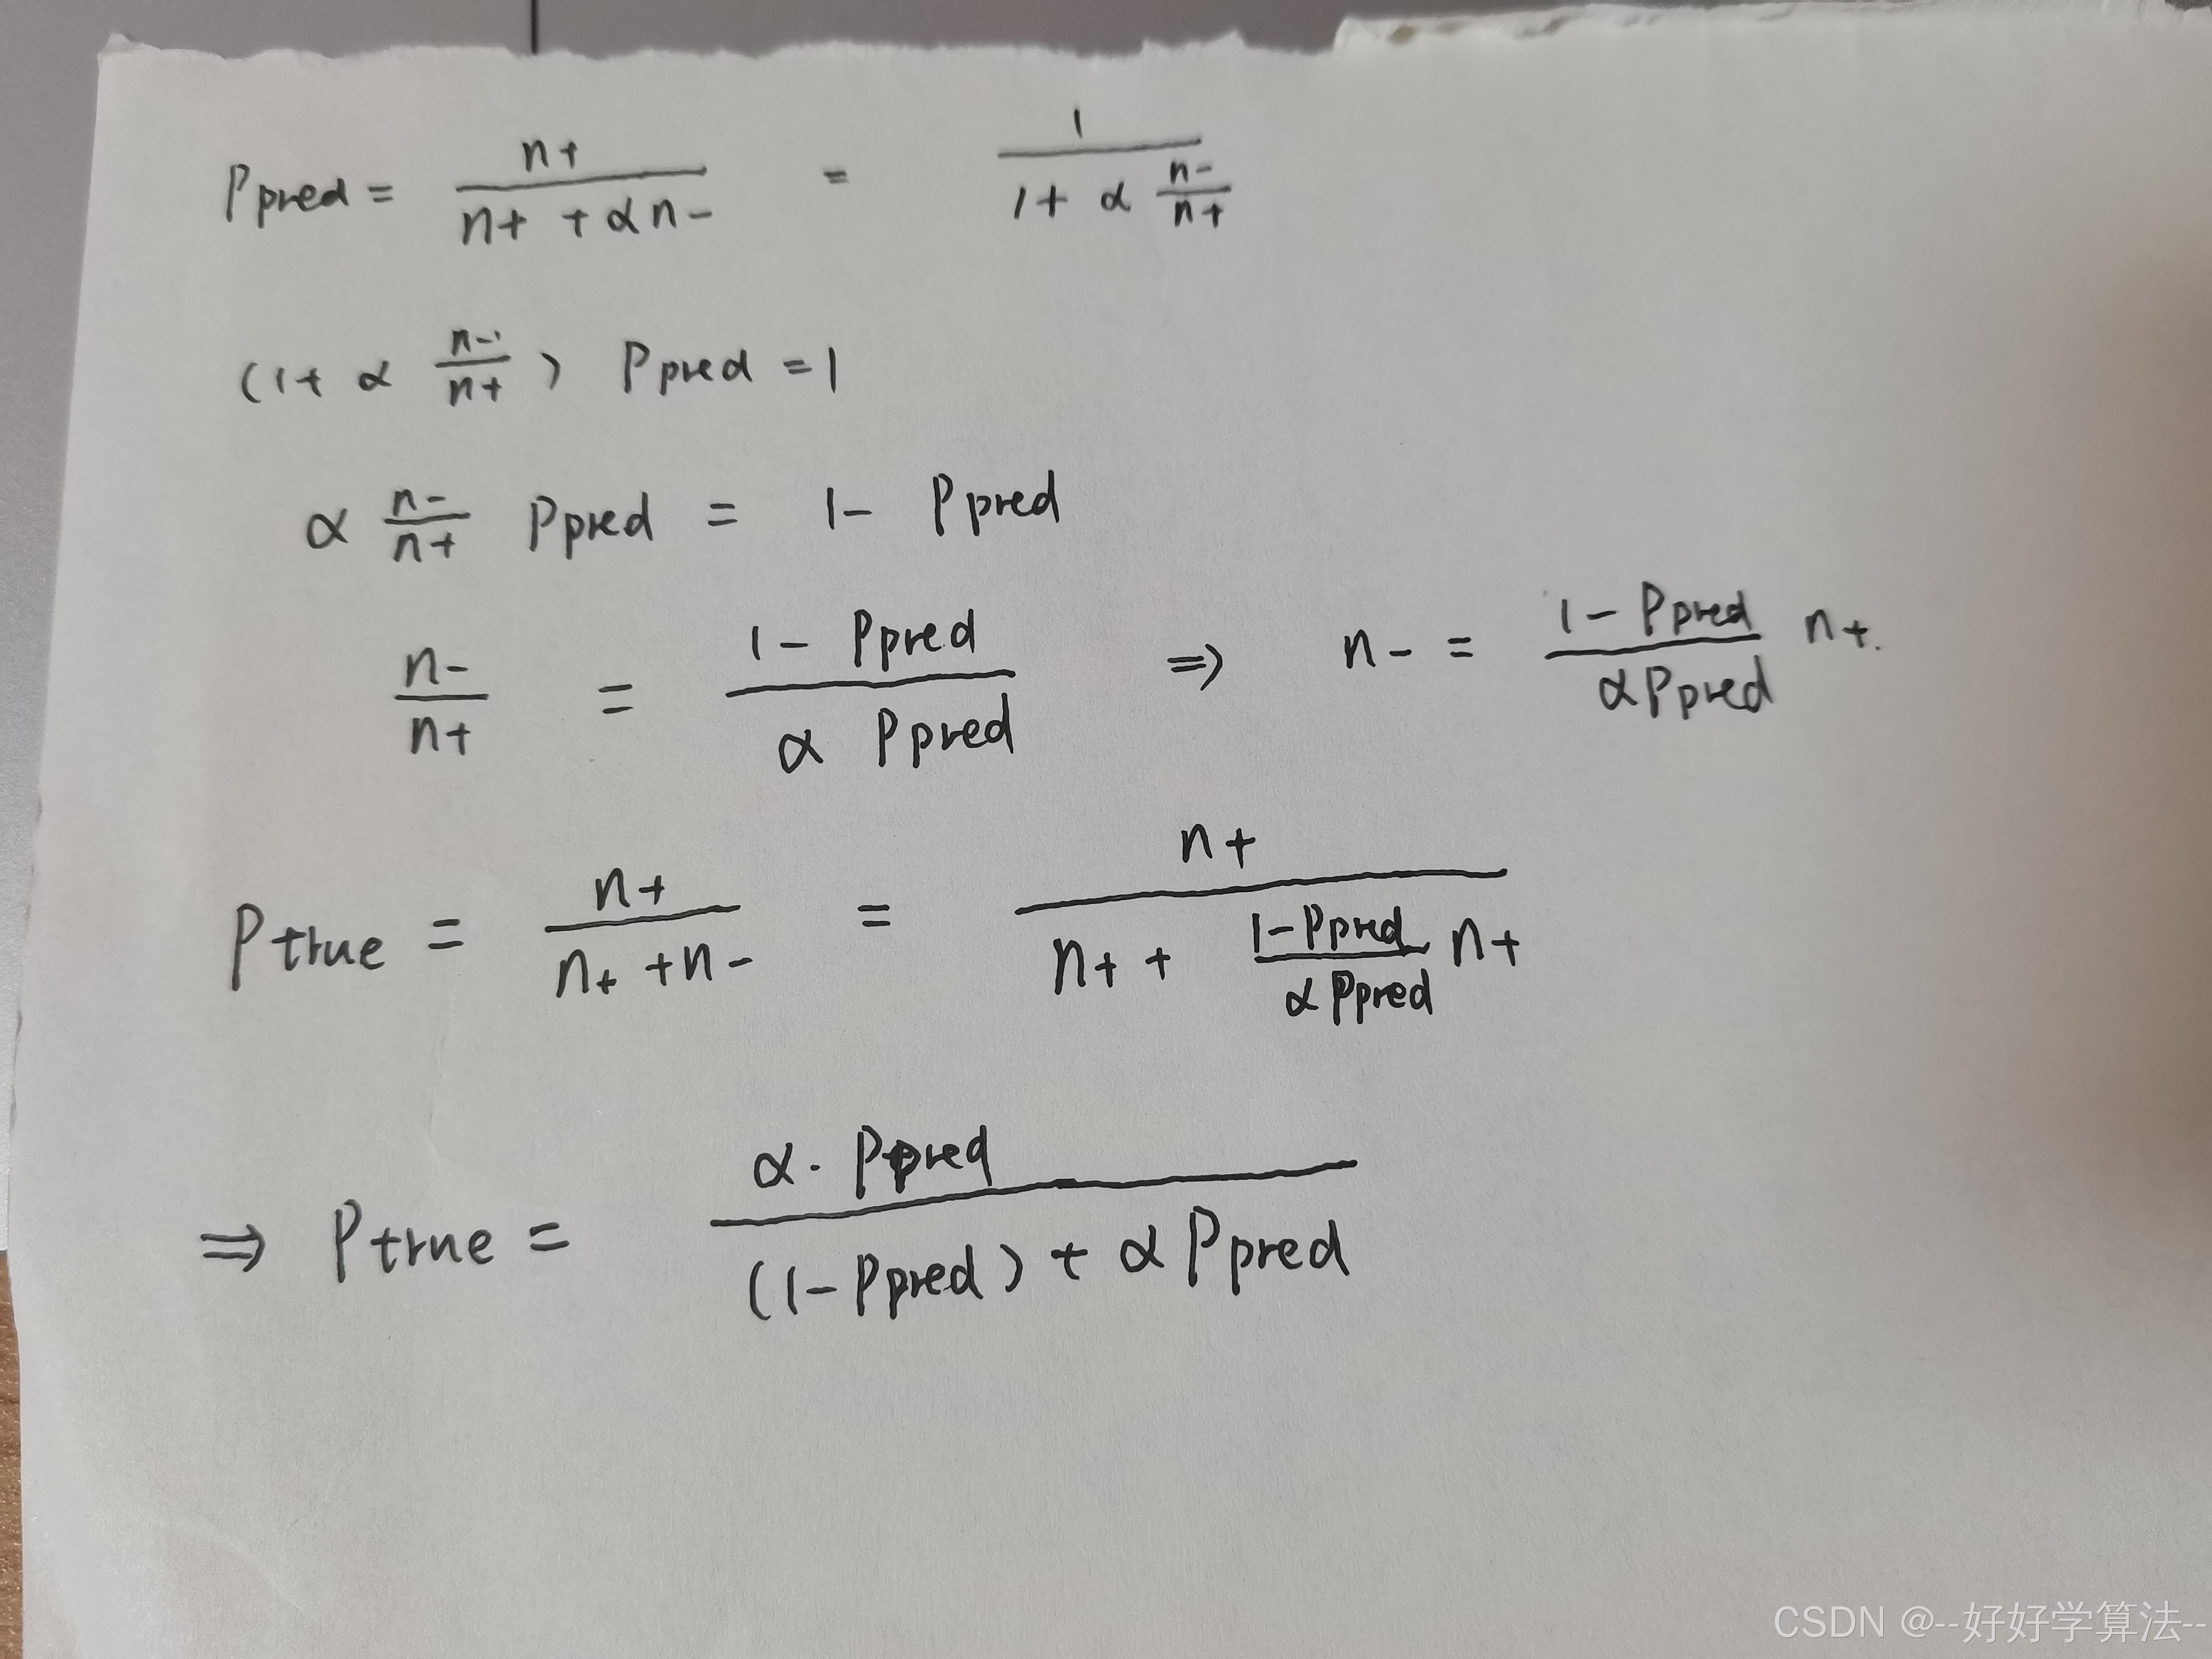 P_pred = \frac{n+}{n+ + αn-} = \frac{1}{1+ α \frac{n-}{n+}}
(1+ α \frac{n-}{n+}) P_pred = 1
α \frac{n-}{n+} P_pred = 1- P_pred
\frac{n-}{n+} = \frac{1- P_pred}{α P_pred} ⇒ n- = \frac{1- P_pred}{αP_pred} n+.
P_true = \frac{n+}{n+ +n-} = \frac{n+}{n+ + \frac{1-P_pred}{αP_pred} n+}
⇒ P_true = \frac{α· P_pred}{(1-P_pred) + αP_pred}
CSDN @--好好学算法--